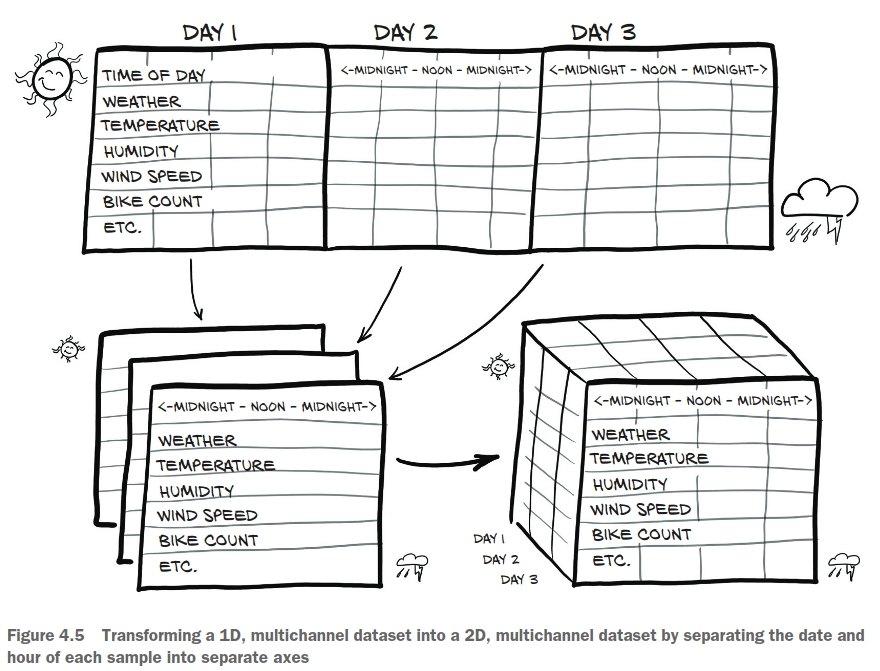 DAY 1 DAY 2 DAY 3
TIME OF DAY <-MIDNIGHT - NOON - MIDNIGHT-> <-MIDNIGHT - NOON - MIDNIGHT->
WEATHER
TEMPERATURE
HUMIDITY
WIND SPEED
BIKE COUNT
ETC.
<-MIDNIGHT - NOON - MIDNIGHT->
WEATHER
TEMPERATURE
HUMIDITY
WIND SPEED
BIKE COUNT
ETC.
<-MIDNIGHT - NOON - MIDNIGHT->
WEATHER
TEMPERATURE
HUMIDITY
WIND SPEED
BIKE COUNT
ETC.
DAY 1
DAY 2
DAY 3
Figure 4.5 Transforming a 1D, multichannel dataset into a 2D, multichannel dataset by separating the date and
hour of each sample into separate axes